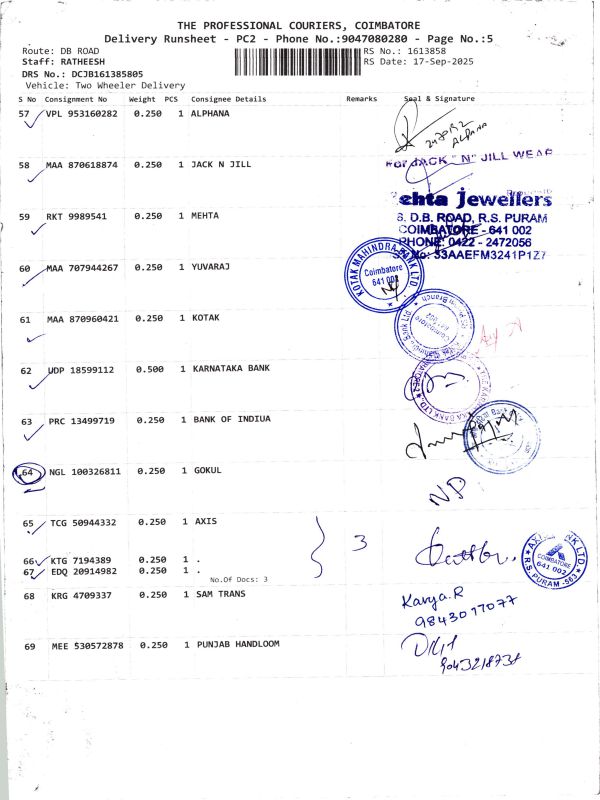 THE PROFESSIONAL COURIERS, COIMBATORE
Delivery Runsheet - PC2 - Phone No.:9047080280 - Page No.:5
Route: DB ROAD RS No.: 1613858
Staff: RATHEESH RS Date: 17-Sep-2025
DRS No.: DCJB161385805
Vehicle: Two Wheeler Delivery
S No Consignment No Weight PCS Consignee Details Remarks Seal & Signature
57 VPL 953160282 0.250 1 ALPHANA
ALPHANA
58 MAA 870618874 0.250 1 JACK N JILL
For JACK "N" JILL WEAR
59 RKT 9989541 0.250 1 MEHTA
ehta Jewellers
S. D.B. ROAD, R.S. PURAM
COIMBATORE - 641 002
PHONE: 0422 - 2472056
No: 33AAEFM3241P1Z7
60 MAA 707944267 0.250 1 YUVARAJ
KOTAK MAHINDRA BANK LTD.
Coimbatore
641 002
61 MAA 870960421 0.250 1 KOTAK
Coimbatore
641 002
62 UDP 18599112 0.500 1 KARNATAKA BANK
63 PRC 13499719 0.250 1 BANK OF INDIUA
64 NGL 100326811 0.250 1 GOKUL
NP
65 TCG 50944332 0.250 1 AXIS
3
66 KTG 7194389 0.250 1 .
67 EDQ 20914982 0.250 1 .
No.Of Docs: 3
AXIS BANK LTD.
COIMBATORE
641 002
R.S. PURAM -563
68 KRG 4709337 0.250 1 SAM TRANS
Kavya.R
9843077077
69 MEE 530572878 0.250 1 PUNJAB HANDLOOM
9043218738